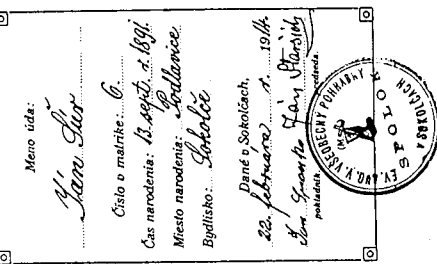 Meno úda:
Ján Šuo
Číslo v matrike: 6.
Čas narodenia: 13. sept. r. 1891.
Miesto narodenia: Podlavice
Bydlisko: Sokolče
Dané v Sokolčach,
22. februára r. 1914.
Ján Staroň
pokladník. predseda.
EV. AUG. V. VŠEOBECNÝ POHRABNÝ SPOLOK V SOKOLČACH